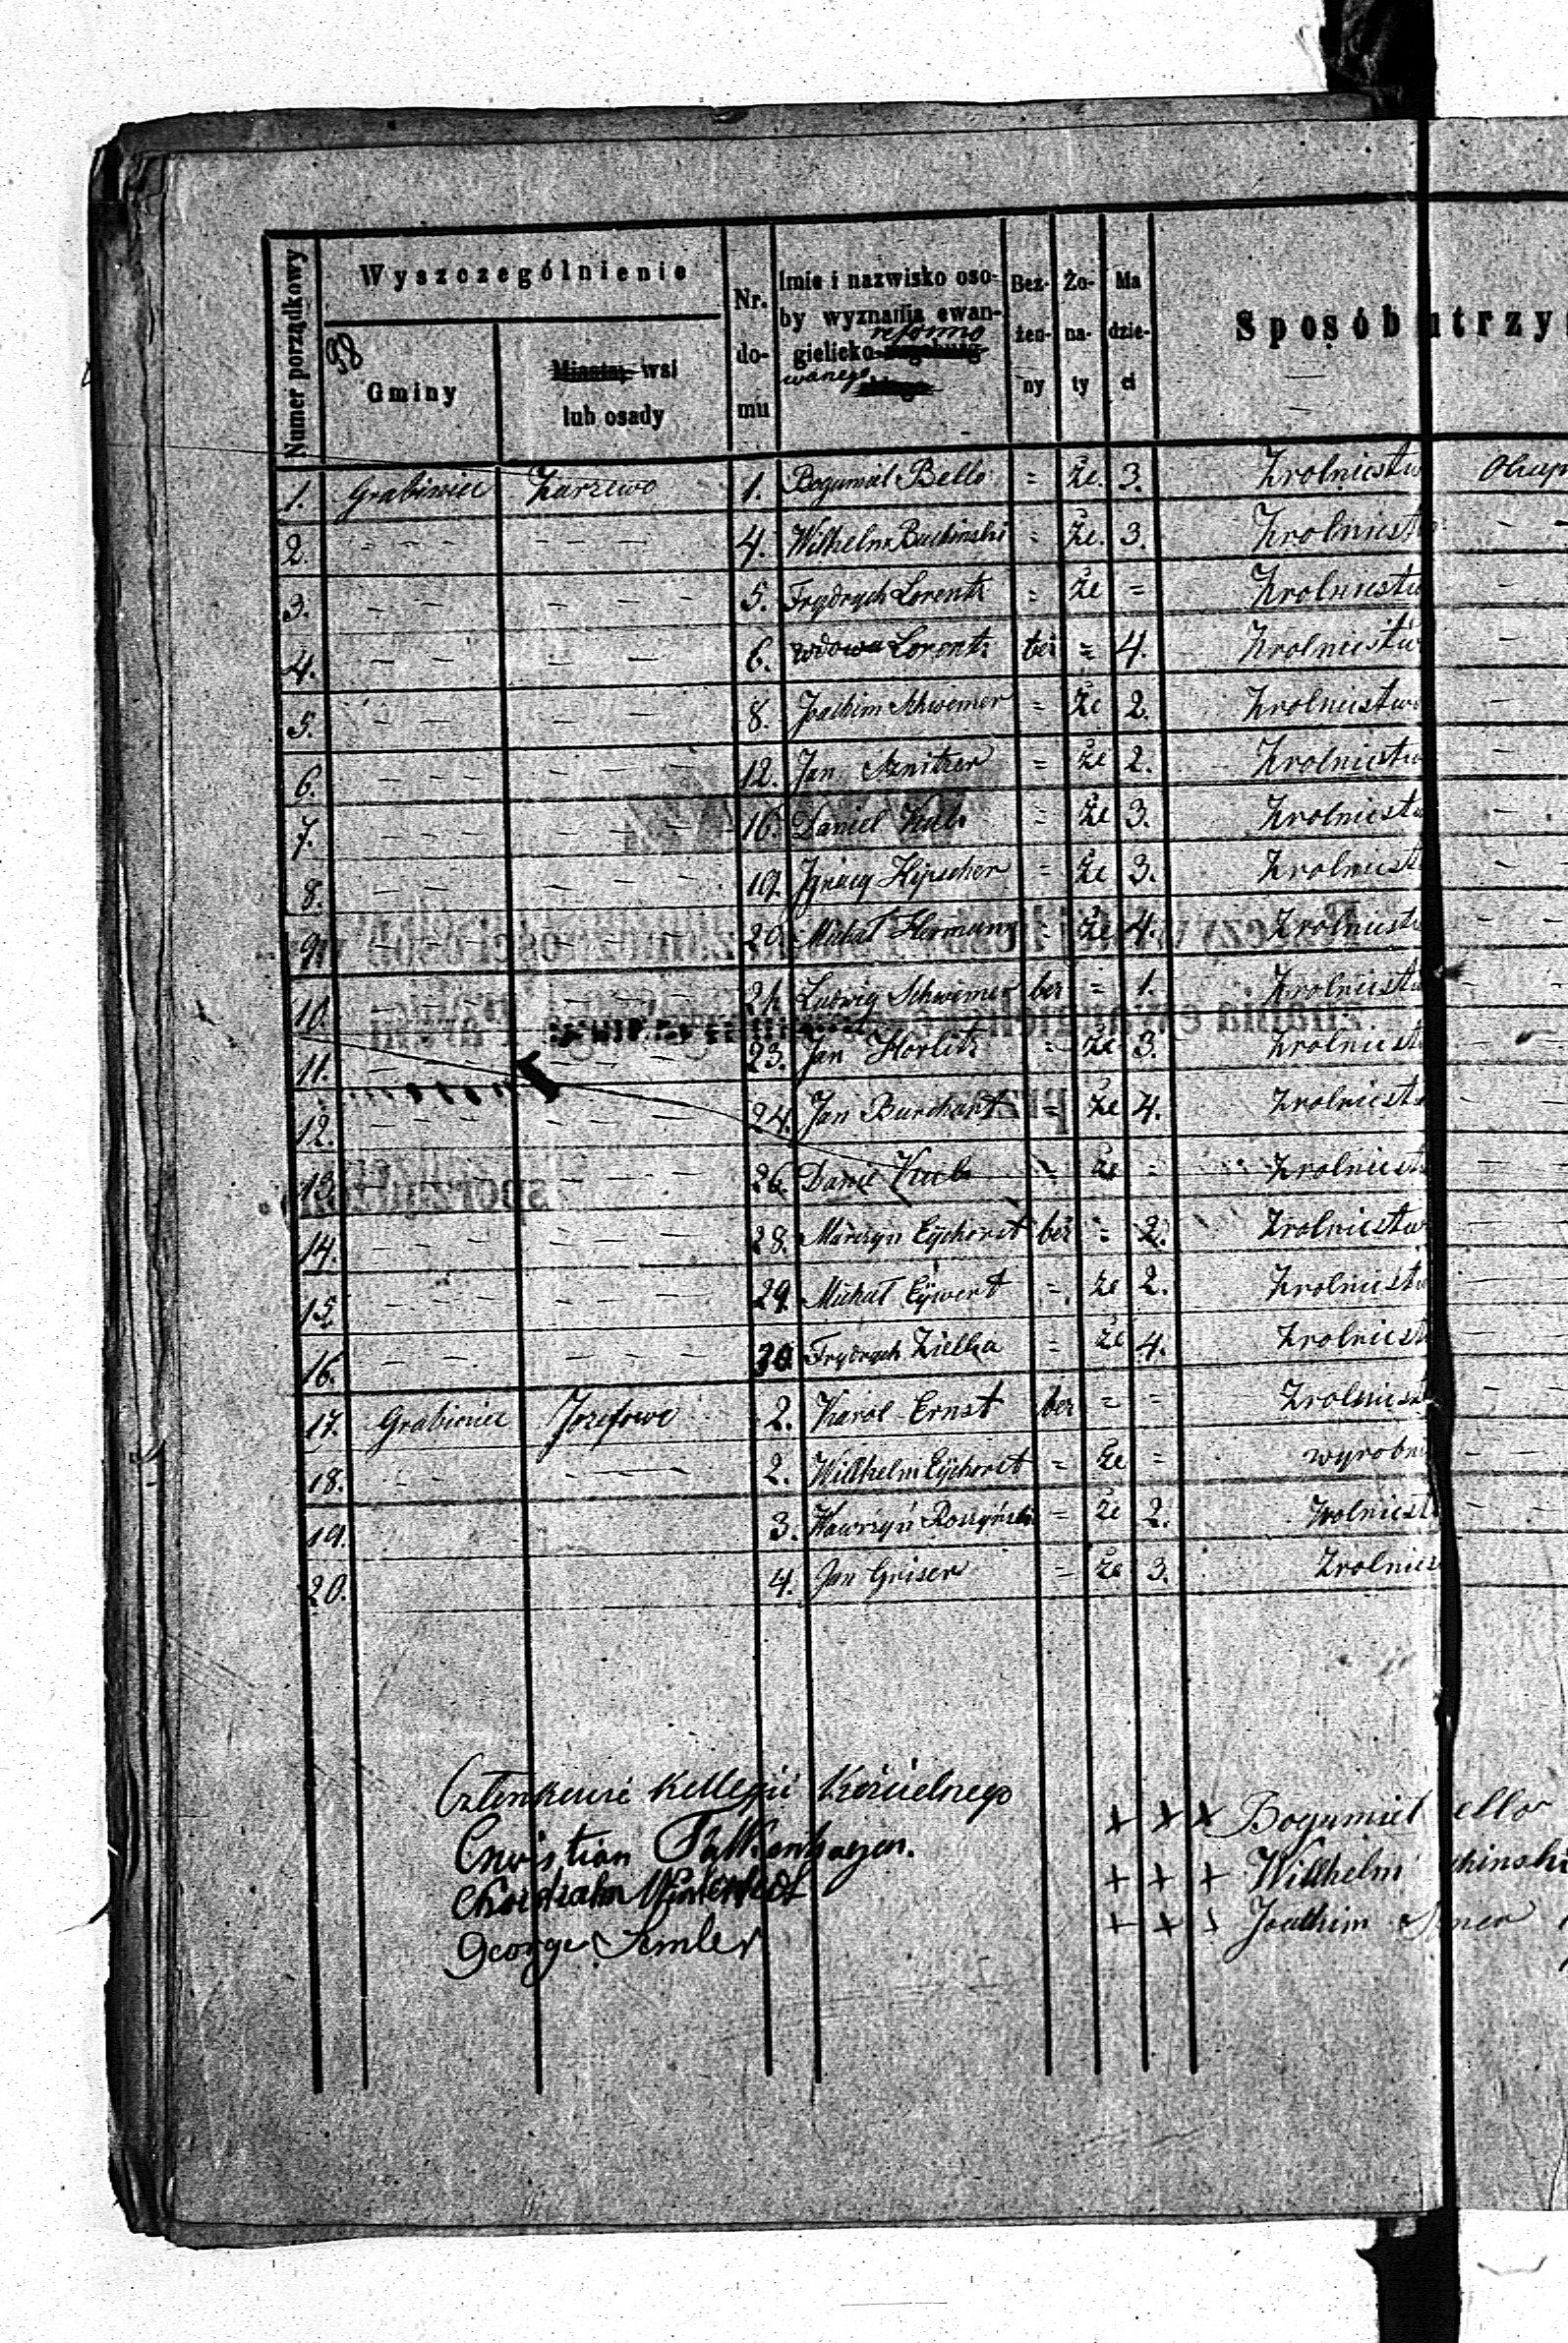 Numer porządkowy
Wyszczególnienie
Gminy
Miasta, wsi
lub osady
Nr. domu
Imie i nazwisko osoby wyznania ewangielicko reformowanego
Bezżenny
Żonaty
Ma dzieci
Sposób utrzy
58
1. Grabiniec Zarzewo 1. Bogumiel Bello = że. 3. Z rolnictw
2. — — — — — — 4. Wilhelm Buchinski = że. 3. Z rolnict
3. — — — — — — 5. Frydrych Lorentz = że = Z rolnictw
4. — — — — — — 6. wdowa Lorentz bez = 4. Z rolnictw
5. — — — — — — 8. Joachim Schwemer = że 2. Z rolnictwa
6. — — — — — — 12. Jan Sznitzer = że 2. Z rolnictw
7. — — — — — — 16. Daniel Kub = że 3. Z rolnictw
8. — — — — — — 19. Ignacy Hipscher = że 3. Z rolnict
9. — — — — — — 20. Michał Hermann = że 4. Z rolnictw
10. — — — — — — 21. Ludwig Schwemer bez = 1. Z rolnictw
11. — — — — — — 23. Jan Horlitz = że 3. Z rolnict
12. — — — — — — 24. Jan Burchart = że 4. Z rolnict
13. — — — — — — 26. Daniel Kub = że = Z rolnict
14. — — — — — — 28. Marcyn Eychorst bez = 2. Z rolnictw
15. — — — — — — 29. Michał Eywert = że 2. Z rolnict
16. — — — — — — 30. Frydrych Zielka = że 4. Z rolnict
17. Grabiniec Jozefowo 2. Karol Ernst bez = = Z rolnict
18. — — — 2. Willhelm Eychorst = że = wyrobn
19. 3. Wawrzyń Roszyński = że 2. Z rolnict
20. 4. Jan Griser = że 3. Z rolnic
Członkowie Kollegii Kościelnego
Christian Falkenhagen.
Winterfeldt
George Semler
+ + + Bogumiel ello
+ + + Willhelm chinski
+ + + Joachim mer